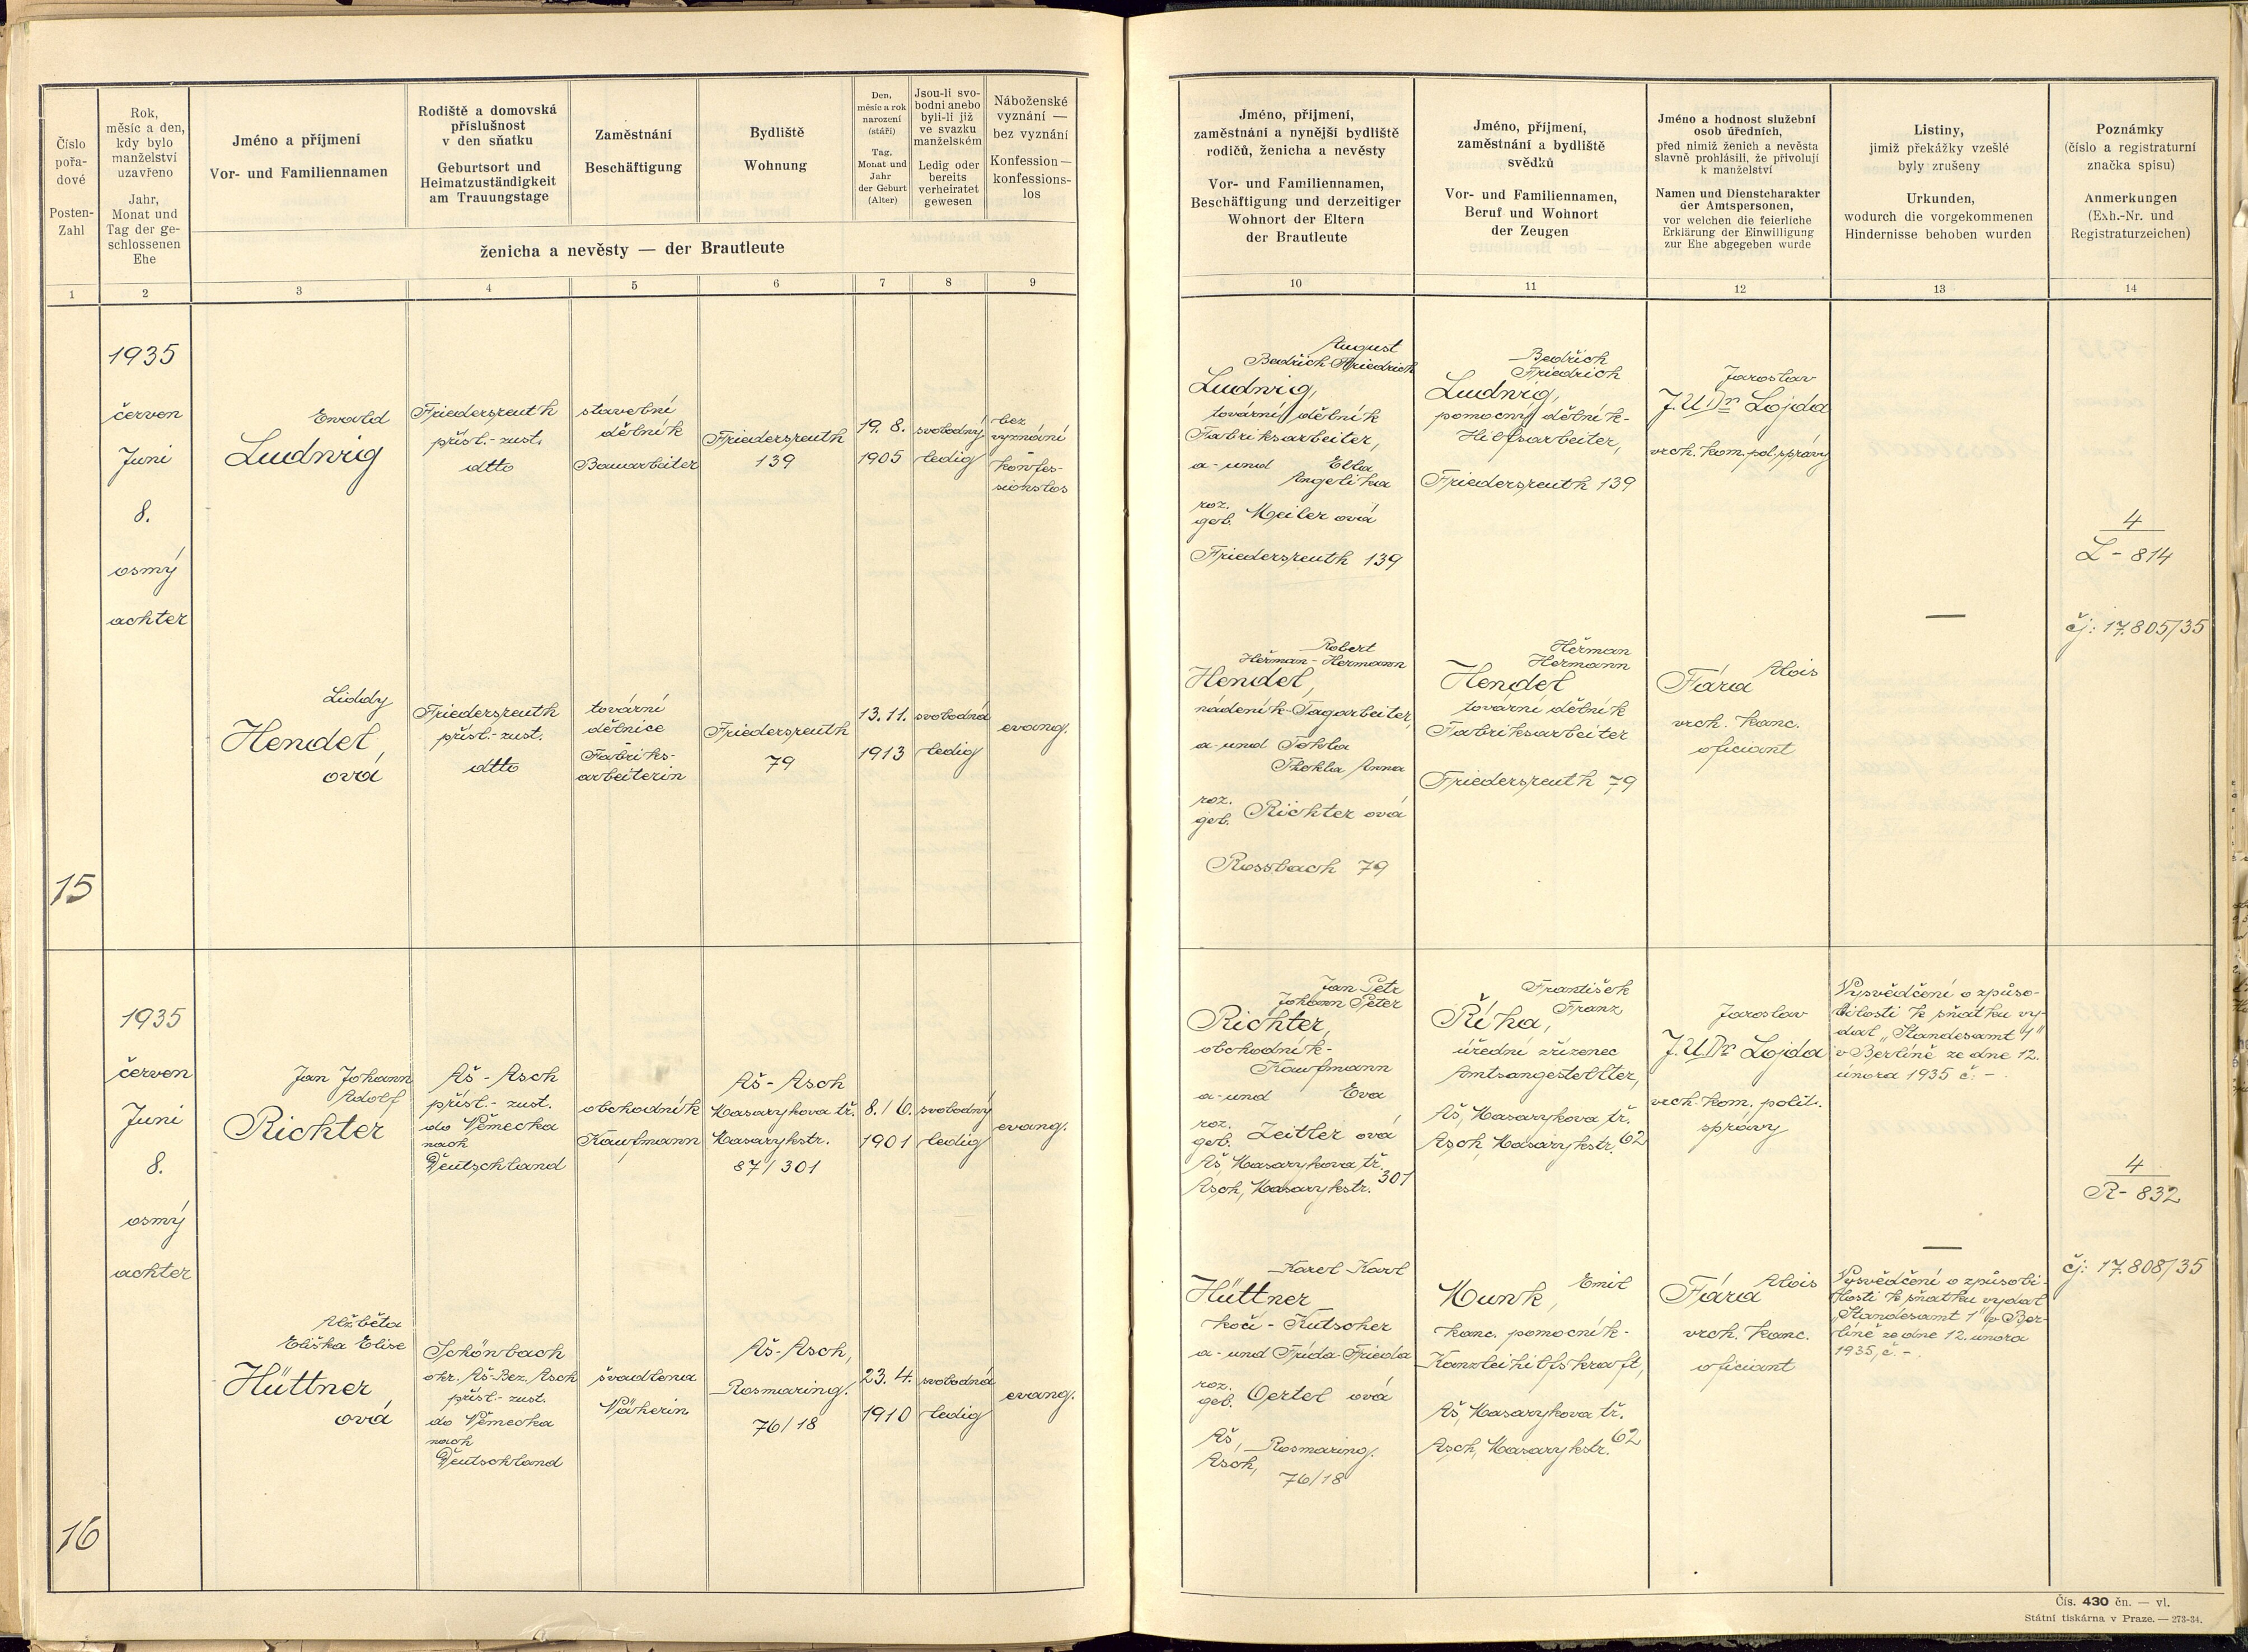 Číslo
pořa-
dové
Posten-
Zahl
Rok,
měsíc a den,
kdy bylo
manželství
uzavřeno
Jahr,
Monat und
Tag der ge-
schlossenen
Ehe
Jméno a příjmení
Vor- und Familiennamen
Rodiště a domovská
příslušnost
v den sňatku
Geburtsort und
Heimatzuständigkeit
am Trauungstage
Zaměstnání
Beschäftigung
Bydliště
Wohnung
Den,
měsíc a rok
narození
(stáří)
Tag,
Monat und
Jahr
der Geburt
(Alter)
Jsou-li svo-
bodni anebo
byli-li již
ve svazku
manželském
Ledig oder
bereits
verheiratet
gewesen
Náboženské
vyznání —
bez vyznání
Konfession —
konfessions-
los
ženicha a nevěsty — der Brautleute
1 2 3 4 5 6 7 8 9
1935
červen
Juni
8.
osmý
achter
Ewald
Ludwig
Friedersreuth
přísl.- zust.
dtto
stavební
dělník
Bauarbeiter
Friedersreuth
139
19. 8.
1905
svobodný
ledig
bez
vyznání
konfes-
sionslos
Liddy
Hendel,
ová
Friedersreuth
přísl.- zust.
dtto
tovární
dělnice
Fabriks-
arbeiterin
Friedersreuth
79
13. 11.
1913
svobodná
ledig
evang.
15
1935
červen
Juni
8.
osmý
achter
Jan Johann
Adolf
Richter
Aš - Asch
přísl.- zust.
do Německa
nach
Deutschland
obchodník
Kaufmann
Aš - Asch
Masarykova tř.
Masarykstr.
87/301
8. / 6.
1901
svobodný
ledig
evang.
Alžběta
Eliška Elise
Hüttner
ová
Schönbach
okr. Aš-Bez. Asch
přísl.- zust.
do Německa
nach
Deutschland
švadlena
Näherin
Aš-Asch,
Rosmaring.
76/18
23. 4.
1910
svobodná
ledig
evang.
16
Jméno, příjmení,
zaměstnání a nynější bydliště
rodičů, ženicha a nevěsty
Vor- und Familiennamen,
Beschäftigung und derzeitiger
Wohnort der Eltern
der Brautleute
Jméno, příjmení,
zaměstnání a bydliště
svědků
Vor- und Familiennamen,
Beruf und Wohnort
der Zeugen
Jméno a hodnost služební
osob úředních,
před nimiž ženich a nevěsta
slavně prohlásili, že přivolují
k manželství
Namen und Dienstcharakter
der Amtspersonen,
vor welchen die feierliche
Erklärung der Einwilligung
zur Ehe abgegeben wurde
Listiny,
jimiž překážky vzešlé
byly zrušeny
Urkunden,
wodurch die vorgekommenen
Hindernisse behoben wurden
Poznámky
(číslo a registraturní
značka spisu)
Anmerkungen
(Exh.-Nr. und
Registraturzeichen)
10 11 12 13 14
August
Bedřich Friedrich
Ludwig,
tovární dělník
Fabriksarbeiter,
a - und Ella
Angelika
roz.
geb. Meiler ová
Friedersreuth 139
Bedřich
Friedrich
Ludwig,
pomocný dělník-
Hilfsarbeiter,
Friedersreuth 139
Jaroslav
J.U.Dr Lojda
vrch. kom. pol. správy
4
L - 814
čj: 17.805/35
—
Robert
Heřman - Hermann
Hendel,
nádeník-Tagarbeiter,
a - und Tekla
Thekla Anna
roz.
geb. Richter ová
Rossbach 79
Heřman
Hermann
Hendel
tovární dělník
Fabriksarbeiter
Friedersreuth 79
Alois
Fára
vrch. kanc.
oficiant
Jan Petr
Johann Peter
Richter,
obchodník-
Kaufmann
a - und Eva
roz.
geb. Zeitler ová
Aš, Masarykova tř.
Asch, Masarykstr. 301
František
Franz
Říha,
úřední zřízenec
Amtsangestellter,
Aš, Masarykova tř.
Asch, Masarykstr. 62
Jaroslav
J.U.Dr Lojda
vrch. kom. polit.
správy
Vysvědčení o způso-
bilosti k sňatku vy-
dal „Standesamt 1"
v Berlíně ze dne 12.
února 1935 č. - .
4
R - 832
čj: 17.808/35
—
Karel Karl
Hüttner
kočí - Kutscher
a - und Frída - Frieda
roz.
geb. Oertel ová
Aš,
Asch, Rosmaring.
76/18
Emil
Munk,
kanc. pomocník-
Kanzleihilfskraft,
Aš, Masarykova tř.
Asch, Masarykstr. 62
Alois
Fára
vrch. kanc.
oficiant
Vysvědčení o způsobi-
losti k sňatku vydal
„Standesamt 1" v Ber-
líně ze dne 12. února
1935, č. - .
Čís. 430 čn. — vl.
Státní tiskárna v Praze. — 273-34.